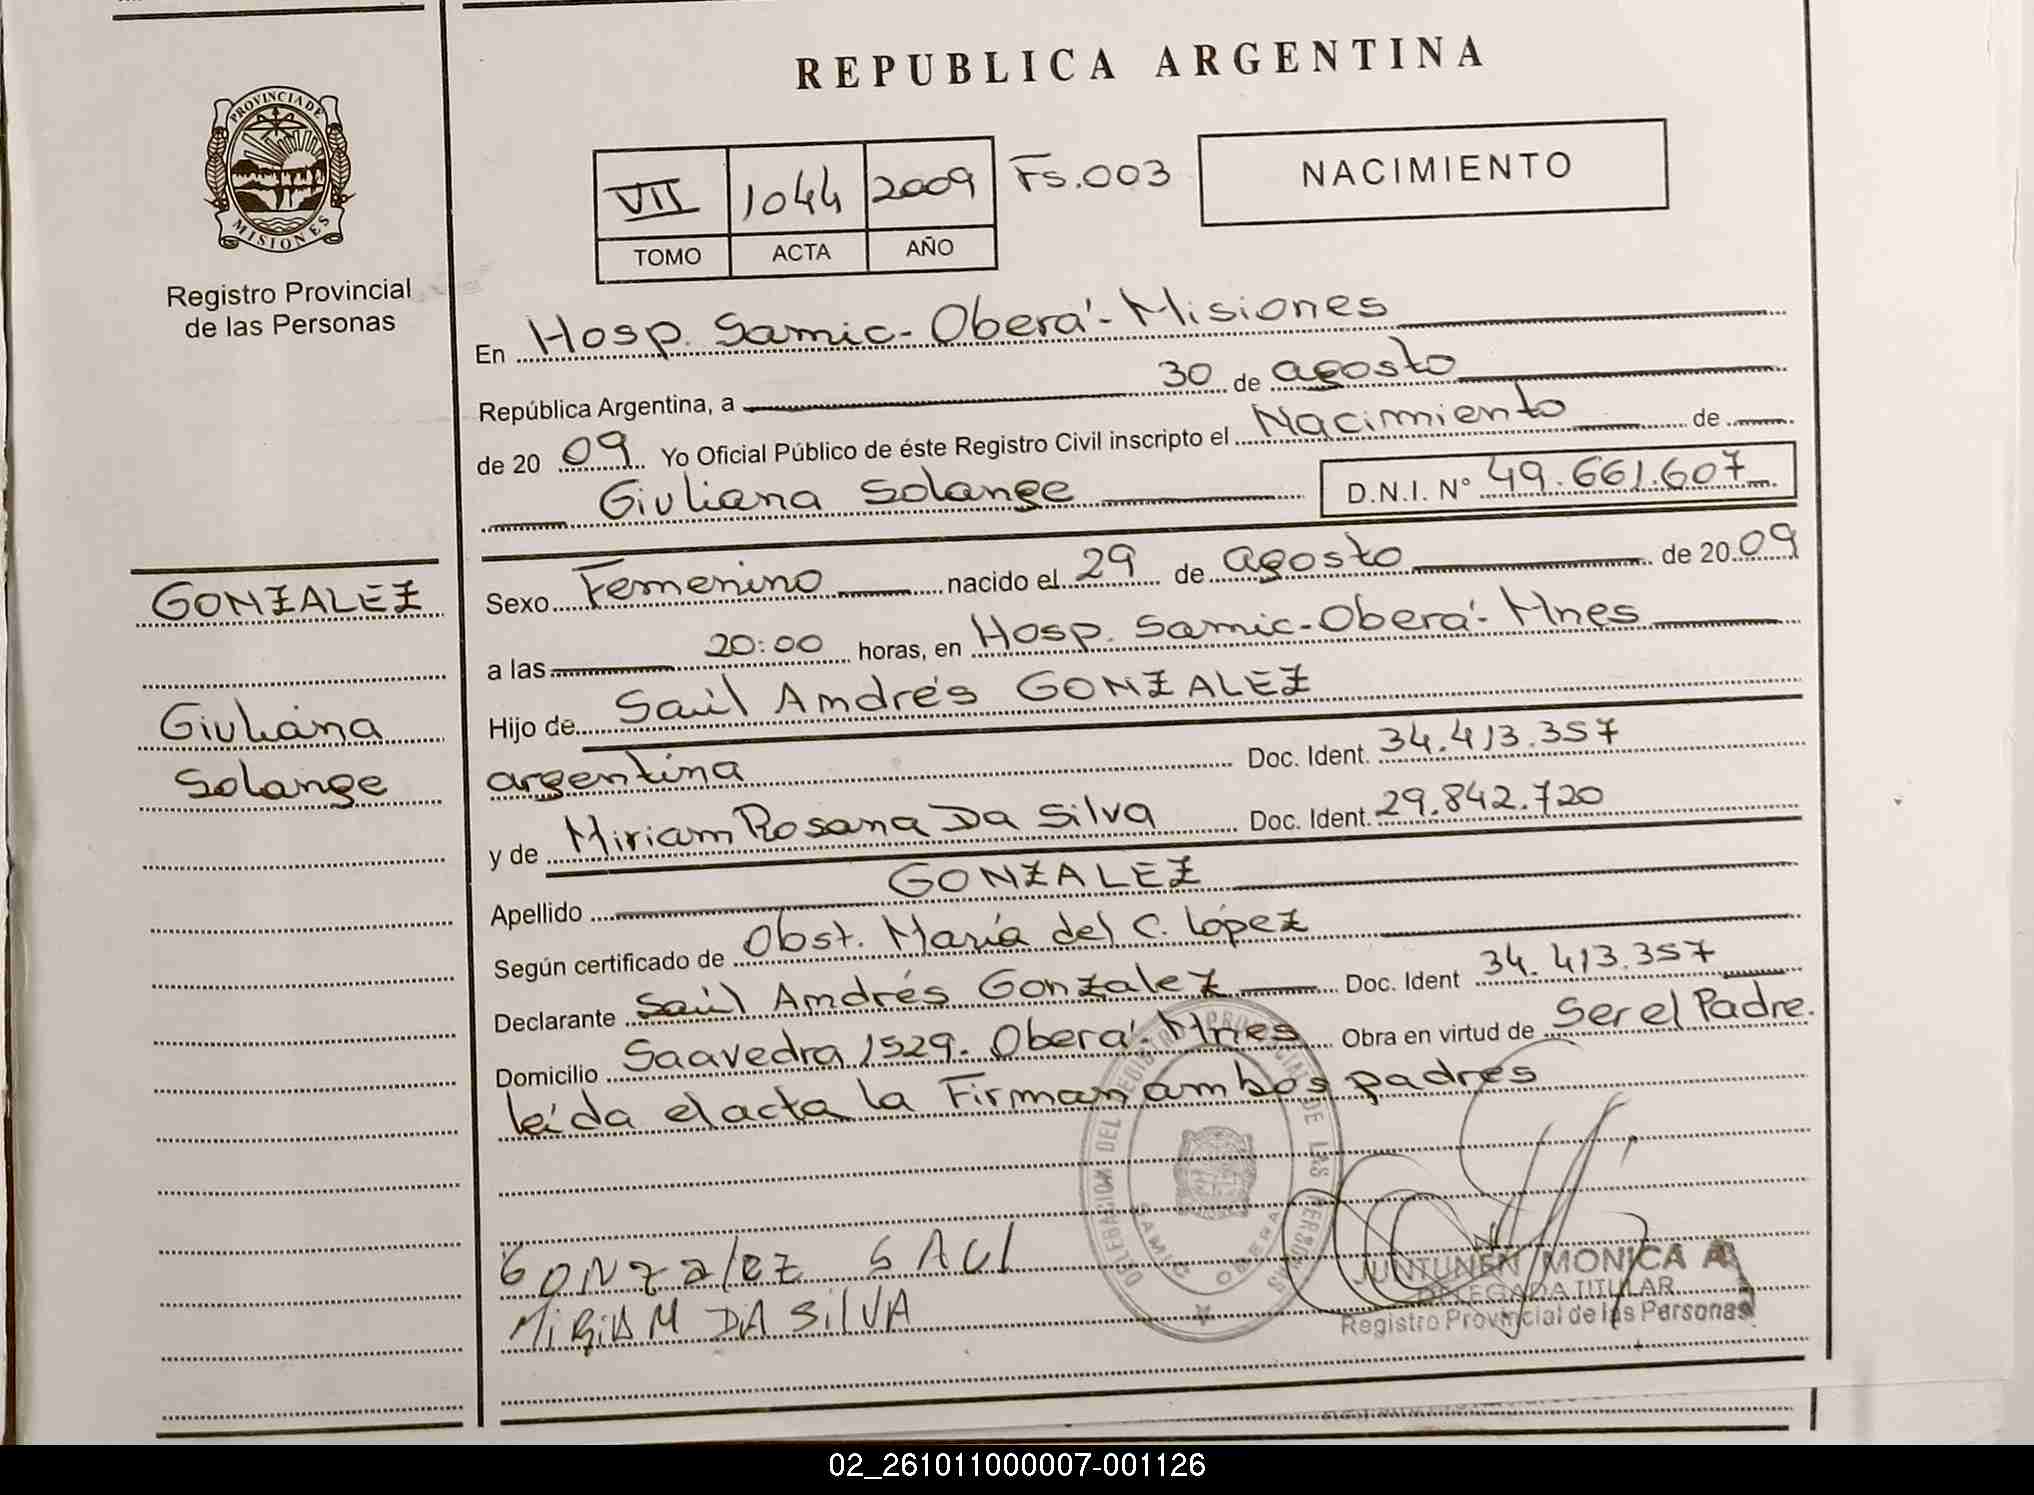 REPUBLICA ARGENTINA
PROVINCIA DE
MISIONES
Registro Provincial
de las Personas
VII 1044 2009 Fs.003
TOMO ACTA AÑO
NACIMIENTO
En Hosp. Samic - Oberá - Misiones
República Argentina, a 30 de agosto
de 20 09 Yo Oficial Público de éste Registro Civil inscripto el Nacimiento de
Giuliana Solange D.N.I. N° 49.661.607
GONZALEZ
Giuliana
Solange
Sexo Femenino nacido el 29 de agosto de 20 09
a las 20:00 horas, en Hosp. Samic - Oberá - Mnes
Hijo de Saúl Andrés GONZALEZ
argentina Doc. Ident. 34.413.357
y de Miriam Rosana Da Silva Doc. Ident. 29.842.720
Apellido GONZALEZ
Según certificado de Obst. María del C. López
Declarante Saúl Andrés Gonzalez Doc. Ident 34.413.357
Domicilio Saavedra 1529. Oberá. Mnes Obra en virtud de Ser el Padre.
leída el acta la Firman ambos padres
DELEGACION DEL REGISTRO PROVINCIAL DE LAS PERSONAS
SAMIC OBERA
GONZalez SAUl
MiRiAM DA SilVA
JUNTUNEN MONICA A
DELEGADA TITULAR
Registro Provincial de las Personas
02_261011000007-001126